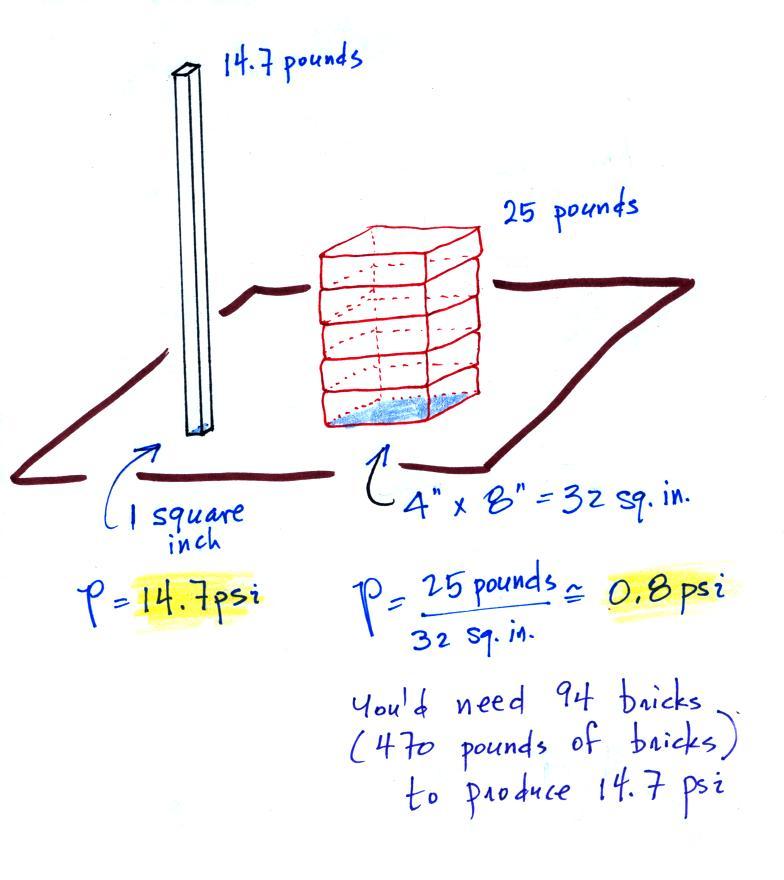 14.7 pounds
25 pounds
1 square
inch
P = 14.7psi
4" x 8" = 32 sq. in.
P = 25 pounds ≅ 0.8 psi
32 sq. in.
You'd need 94 bricks
(470 pounds of bricks)
to produce 14.7 psi